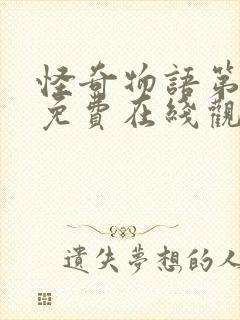 怪奇物語第
免費在綫觀
遺失夢想的人